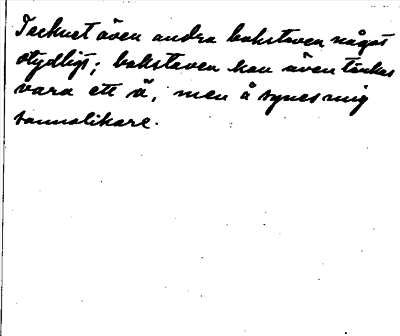 Tecknet även andra bokstaven något
otydligt; bokstaven kan även tänkas
vara ett ä, men å synes mig
sannolikare.